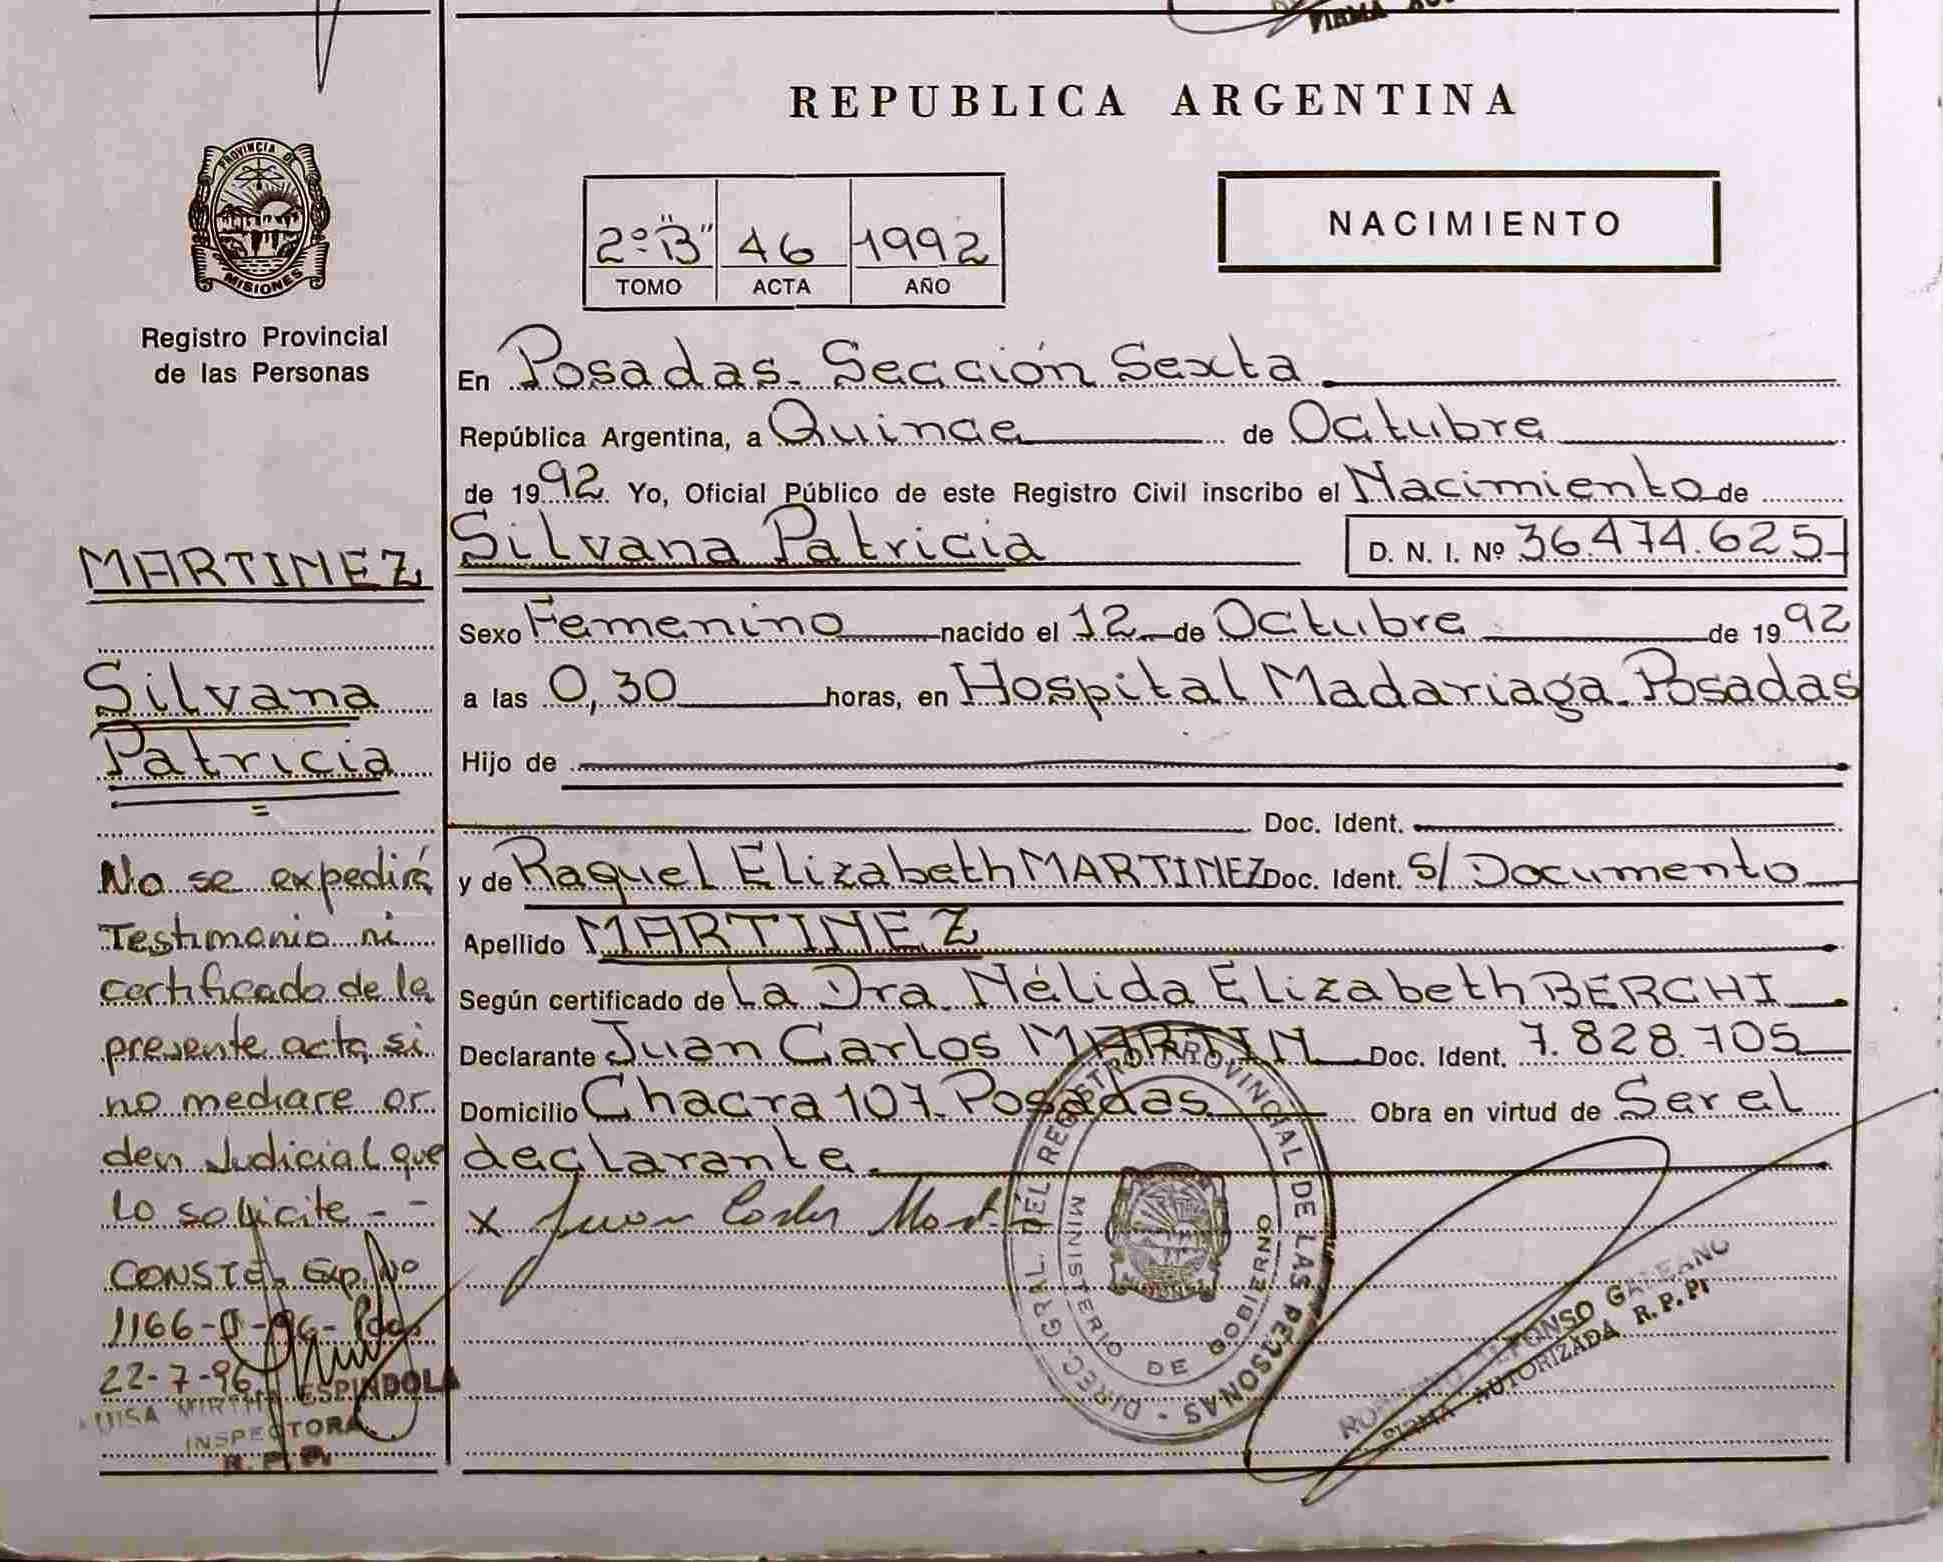 FIRMA
REPUBLICA ARGENTINA
PROVINCIA DE
MISIONES
Registro Provincial
de las Personas
2º "B" 46 1992
TOMO ACTA AÑO
NACIMIENTO
En Posadas. Sección Sexta
República Argentina, a Quince de Octubre
de 1992. Yo, Oficial Público de este Registro Civil inscribo el Nacimiento de
Silvana Patricia D. N. I. Nº 36.474.625
Sexo Femenino nacido el 12 de Octubre de 1992
a las 0,30 horas, en Hospital Madariaga. Posadas
Hijo de
Doc. Ident.
y de Raquel Elizabeth MARTINEZ Doc. Ident. S/ Documento
Apellido MARTINEZ
Según certificado de La Dra. Nélida Elizabeth BERCHI
Declarante Juan Carlos MARTIN Doc. Ident. 7.828.705
Domicilio Chacra 107. Posadas Obra en virtud de Ser el
declarante.
x Juan Carlos
MARTINEZ
Silvana
Patricia
=
No se expedirá
Testimonio ni
certificado de la
presente acta, si
no mediare or
den Judicial que
lo solicite - -
CONSTE. Exp. Nº
1166-
22-7-96
LUISA MIRTHA ESPINDOLA
INSPECTORA
R. P. P.
DIREC. GRAL. DEL REGISTRO PROVINCIAL DE LAS PERSONAS -
MINISTERIO DE GOBIERNO
ALFONSO GALEANO
FIRMA AUTORIZADA R. P. P.